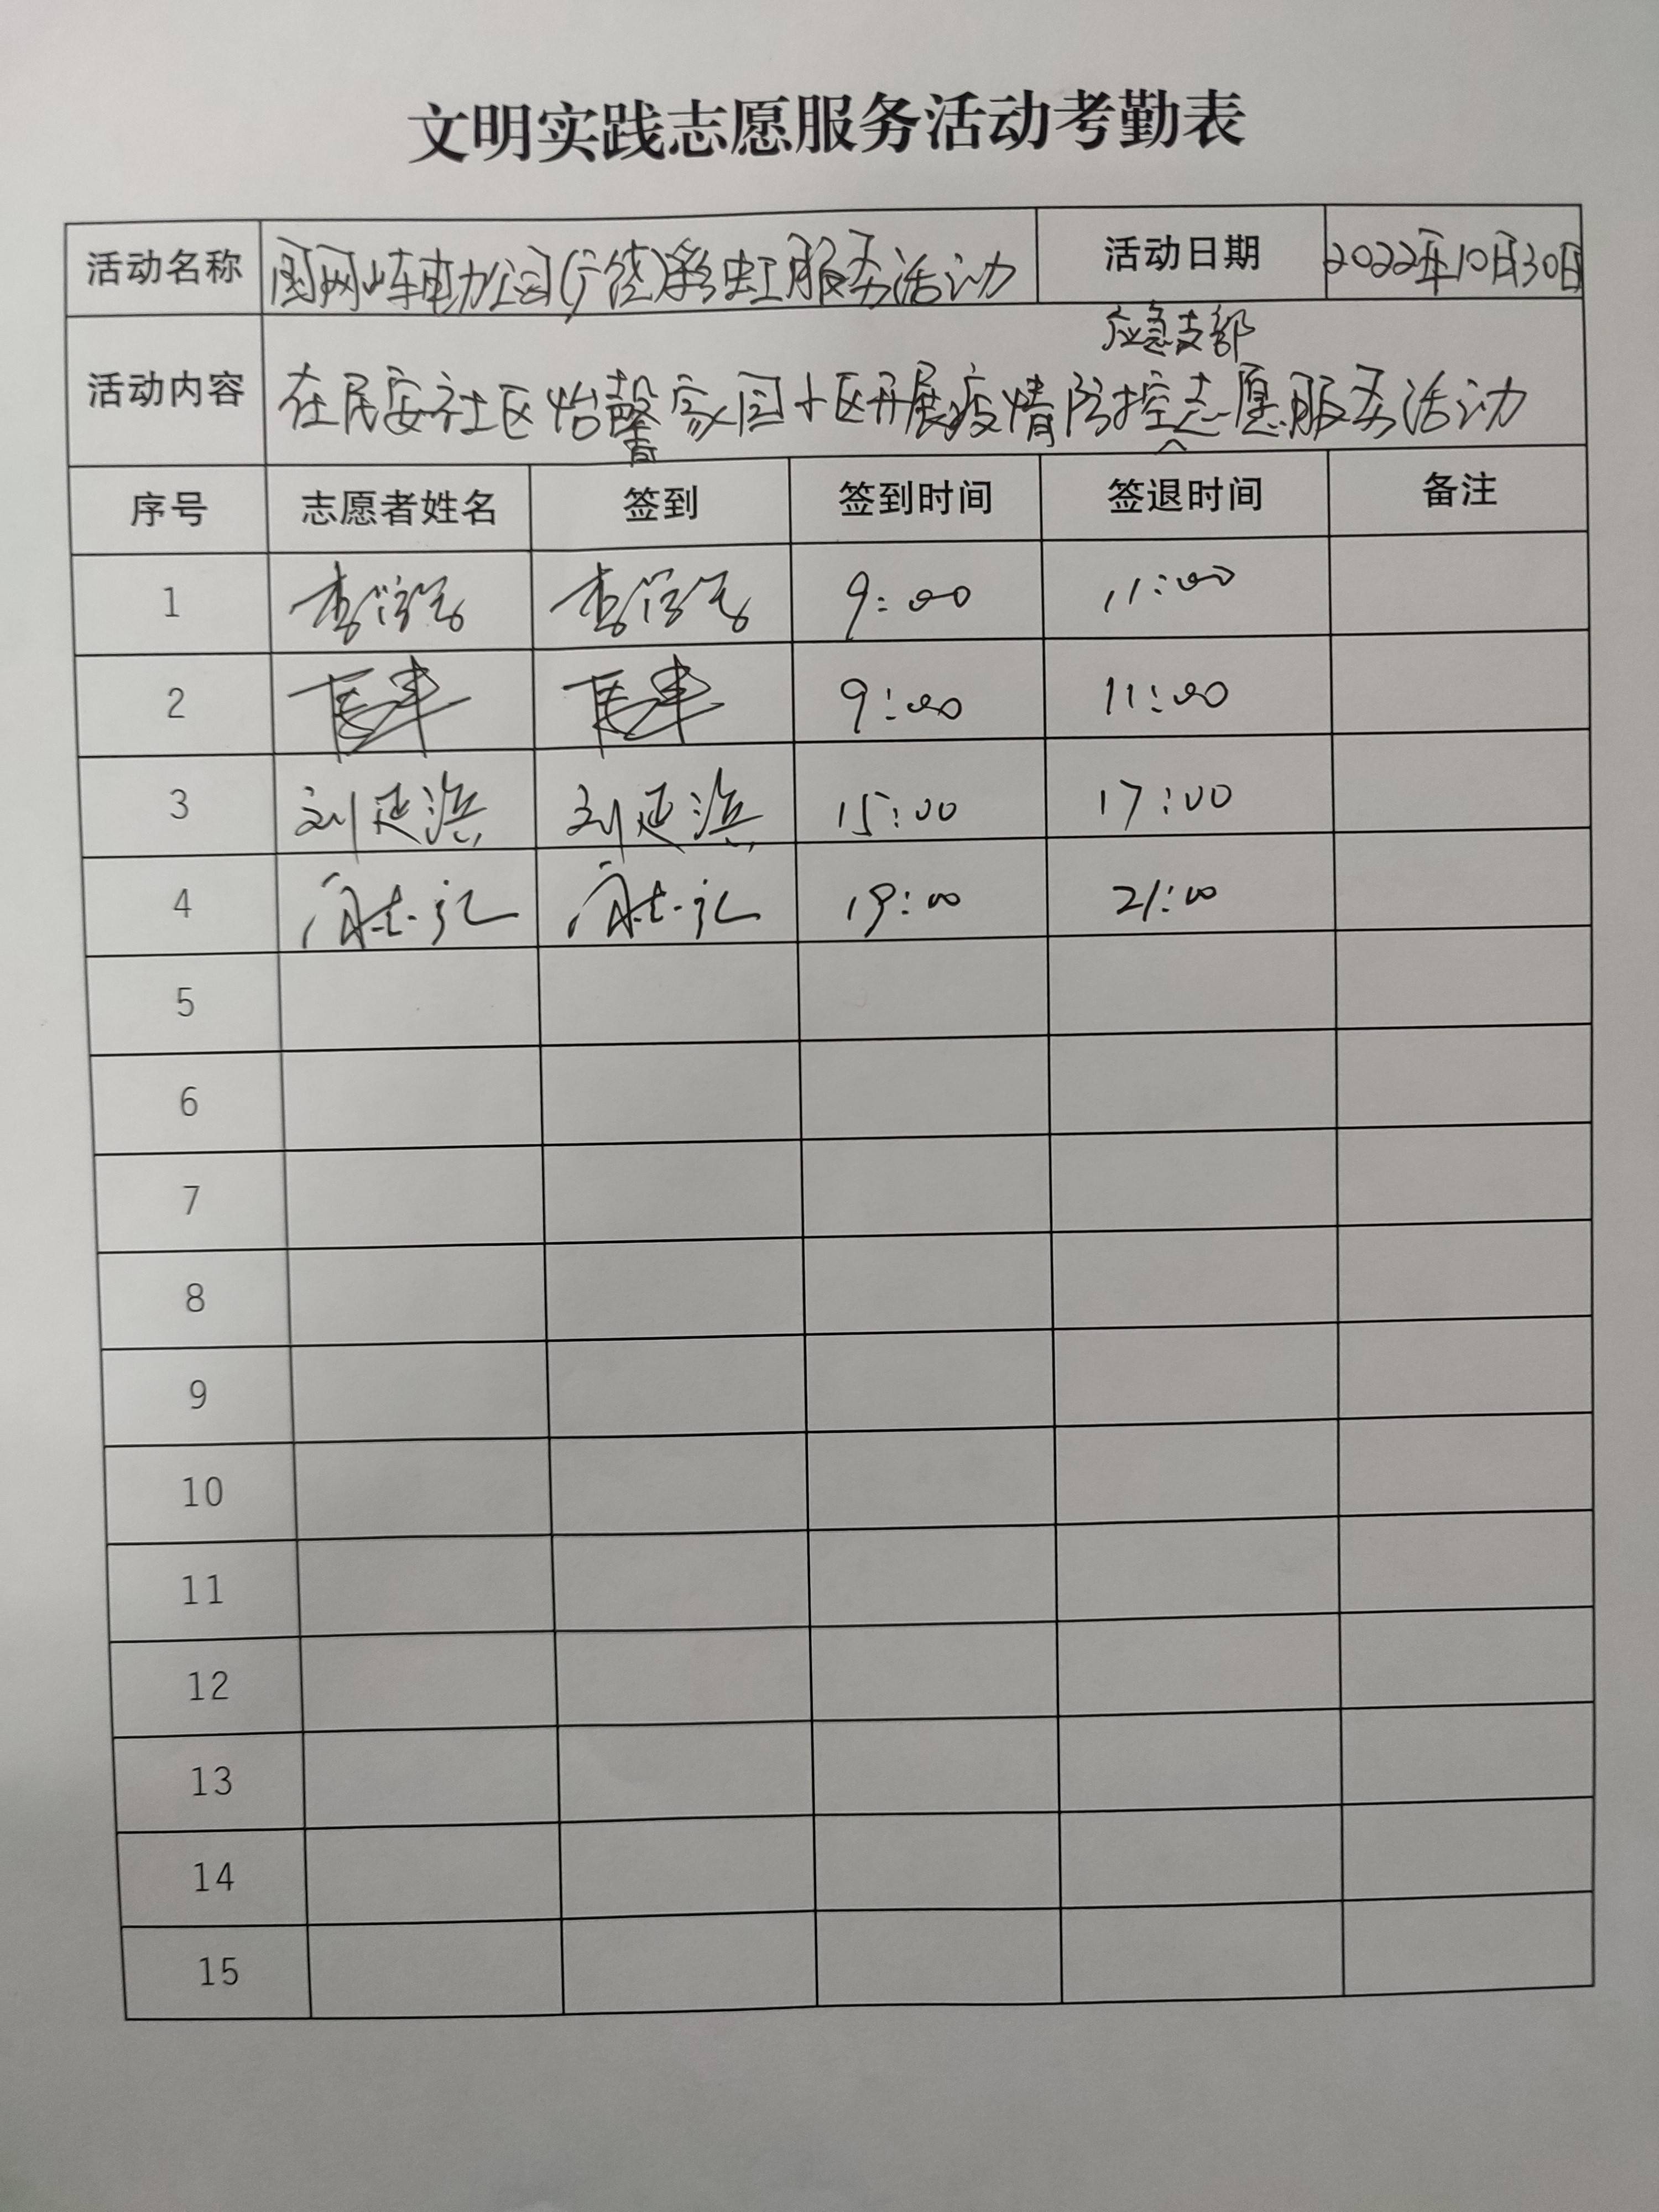 文明实践志愿服务活动考勤表
活动名称 国网 电力公司(广饶)彩虹服务活动 活动日期 2022年10月30日
应急支部
活动内容 在民安社区怡馨家园小区开展疫情防控志愿服务活动
序号 志愿者姓名 签到 签到时间 签退时间 备注
1 9:00 11:00
2 9:00 11:00
3 刘延滨 刘延滨 15:00 17:00
4 19:00 21:00
5
6
7
8
9
10
11
12
13
14
15